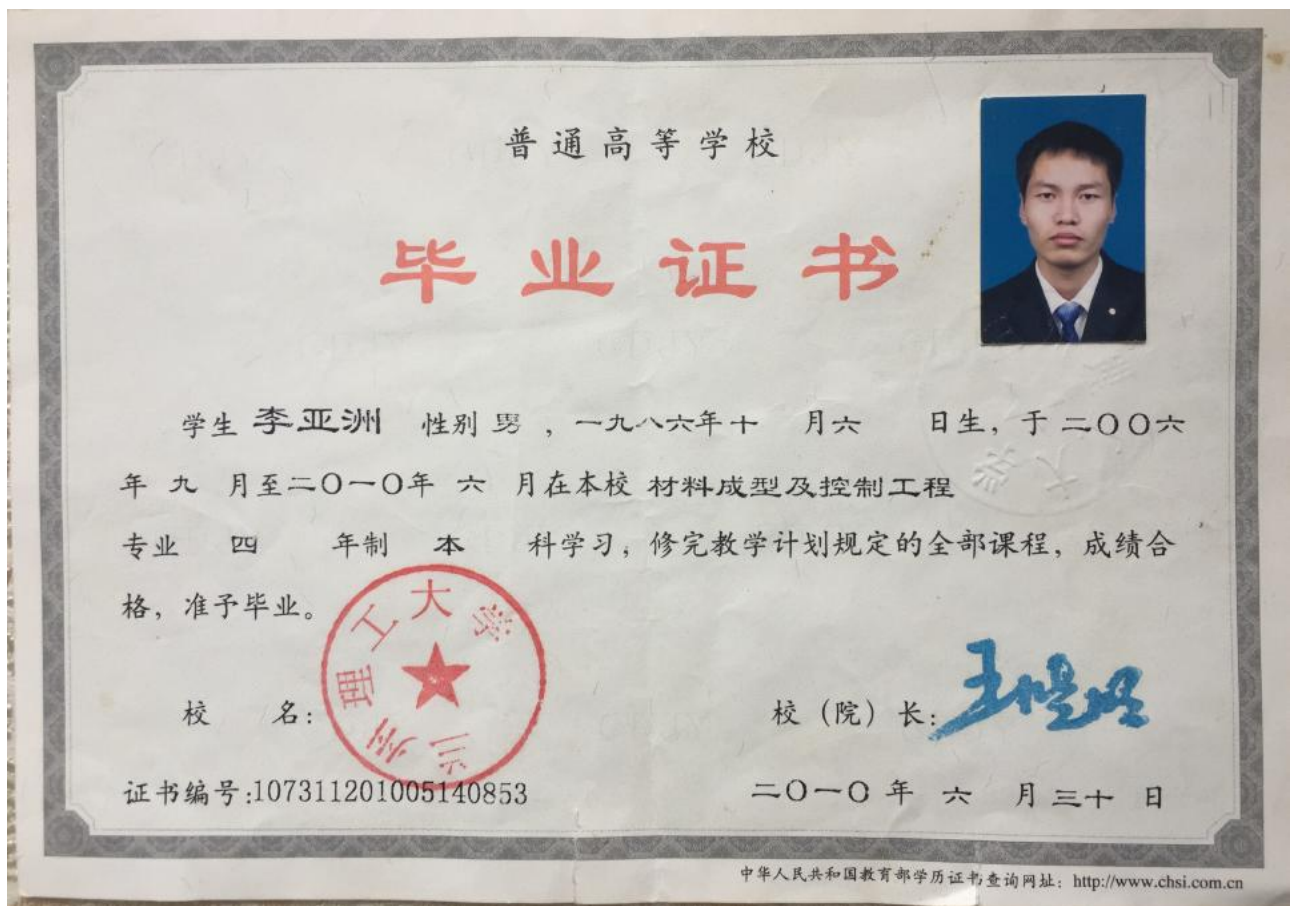 普通高等学校
毕业证书
学生 李亚洲 性别 男 ，一九八六年十 月六 日生，于 二〇〇六
年 九 月至二〇一〇年 六 月在本校 材料成型及控制工程
专业 四 年制 本 科学习，修完教学计划规定的全部课程，成绩合
格，准予毕业。
兰州理工大学
校 名：
校（院）长：
证书编号:107311201005140853
二〇一〇 年 六 月 三十 日
中华人民共和国教育部学历证书查询网址：http://www.chsi.com.cn